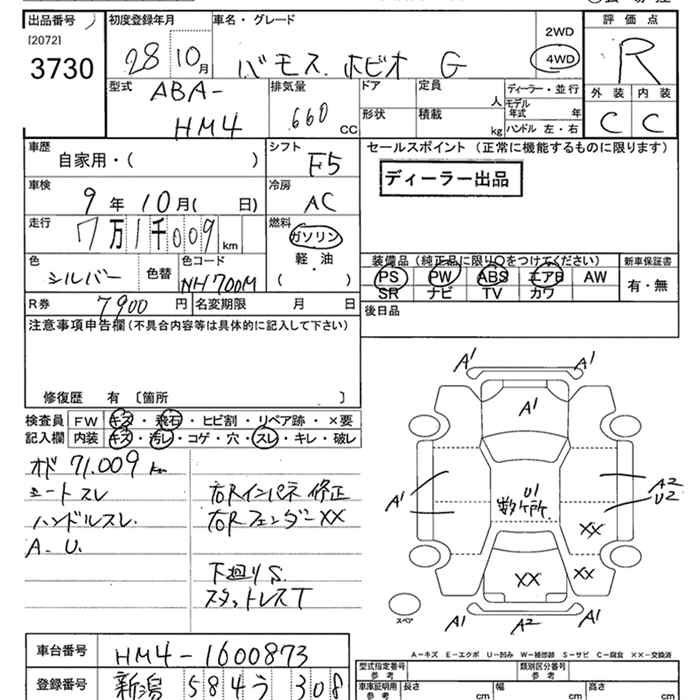 出品番号 初度登録年月 車名・グレード 2WD 評価点
[2072]
3730 28 10月 バモス ホビオ G 4WD R
型式 排気量 ドア 定員 人 ディーラー・並行 外装 内装
ABA-
HM4 660 CC 形状 積載 kg モデル年式 年 C C
ハンドル 左・右
車歴 シフト セールスポイント (正常に機能するものに限ります)
自家用・( ) F5 ディーラー出品
車検 冷房
9年 10月( 日) AC
走行 燃料
7万1千009km ガソリン
軽油
・
( )
色 色替 色コード 装備品(純正品に限り○をつけてください) 新車保証書
シルバー NH700M PS PW ABS エアB AW 有・無
SR ナビ TV カワ
R券 7900円 名変期限 月 日 後日品
注意事項申告欄(不具合内容等は具体的に記入して下さい)
修復歴 有 〔箇所 〕
検査員 FW キズ・飛石・ヒビ割・リペア跡・×要
記入欄 内装 キズ・汚レ・コゲ・穴・スレ・キレ・破レ
オド 71,009km
シートスレ 右Rインパネ修正
ハンドルスレ 右Rフェンダー××
A.U.
下廻りS
スタットレスT
A1 A1
A1
A1 U1 数ヶ所 A2
U2
XX
XX XX
スペア A1 A2 A1
A-キズ E-エクボ U-凹み W-補修跡 S-サビ C-腐食 ××-交換済
車台番号 HM4-1600873
型式指定番号 参考 類別区分番号 参考
登録番号 新潟 584 う 308
車庫証明用 参考 長さ cm 幅 cm 高さ cm